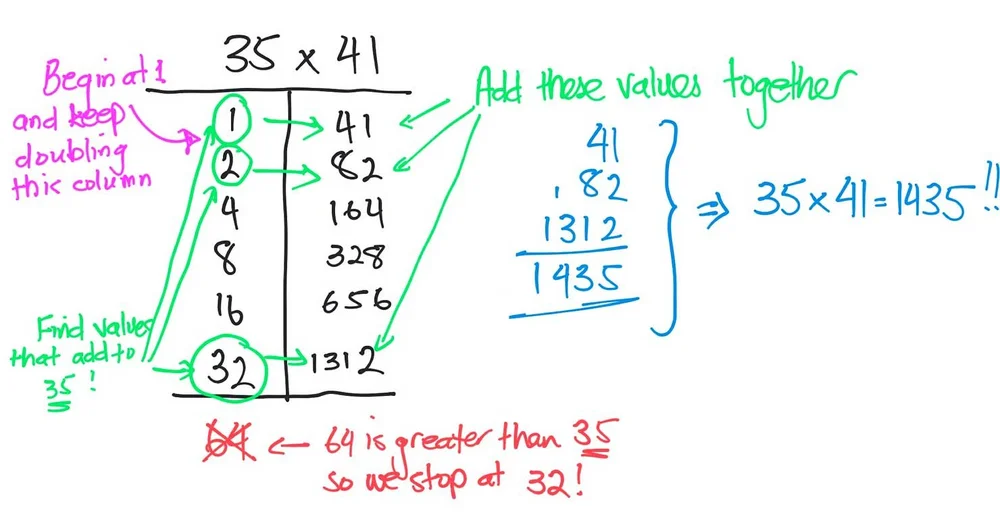 35 x 41
Begin at 1
and keep
doubling
this column
1 41
2 82
4 164
8 328
16 656
32 1312
Find values
that add to
35!
64 ← 64 is greater than 35
so we stop at 32!
Add these values together
41
82
1312
1435
⇒ 35 x 41 = 1435!!